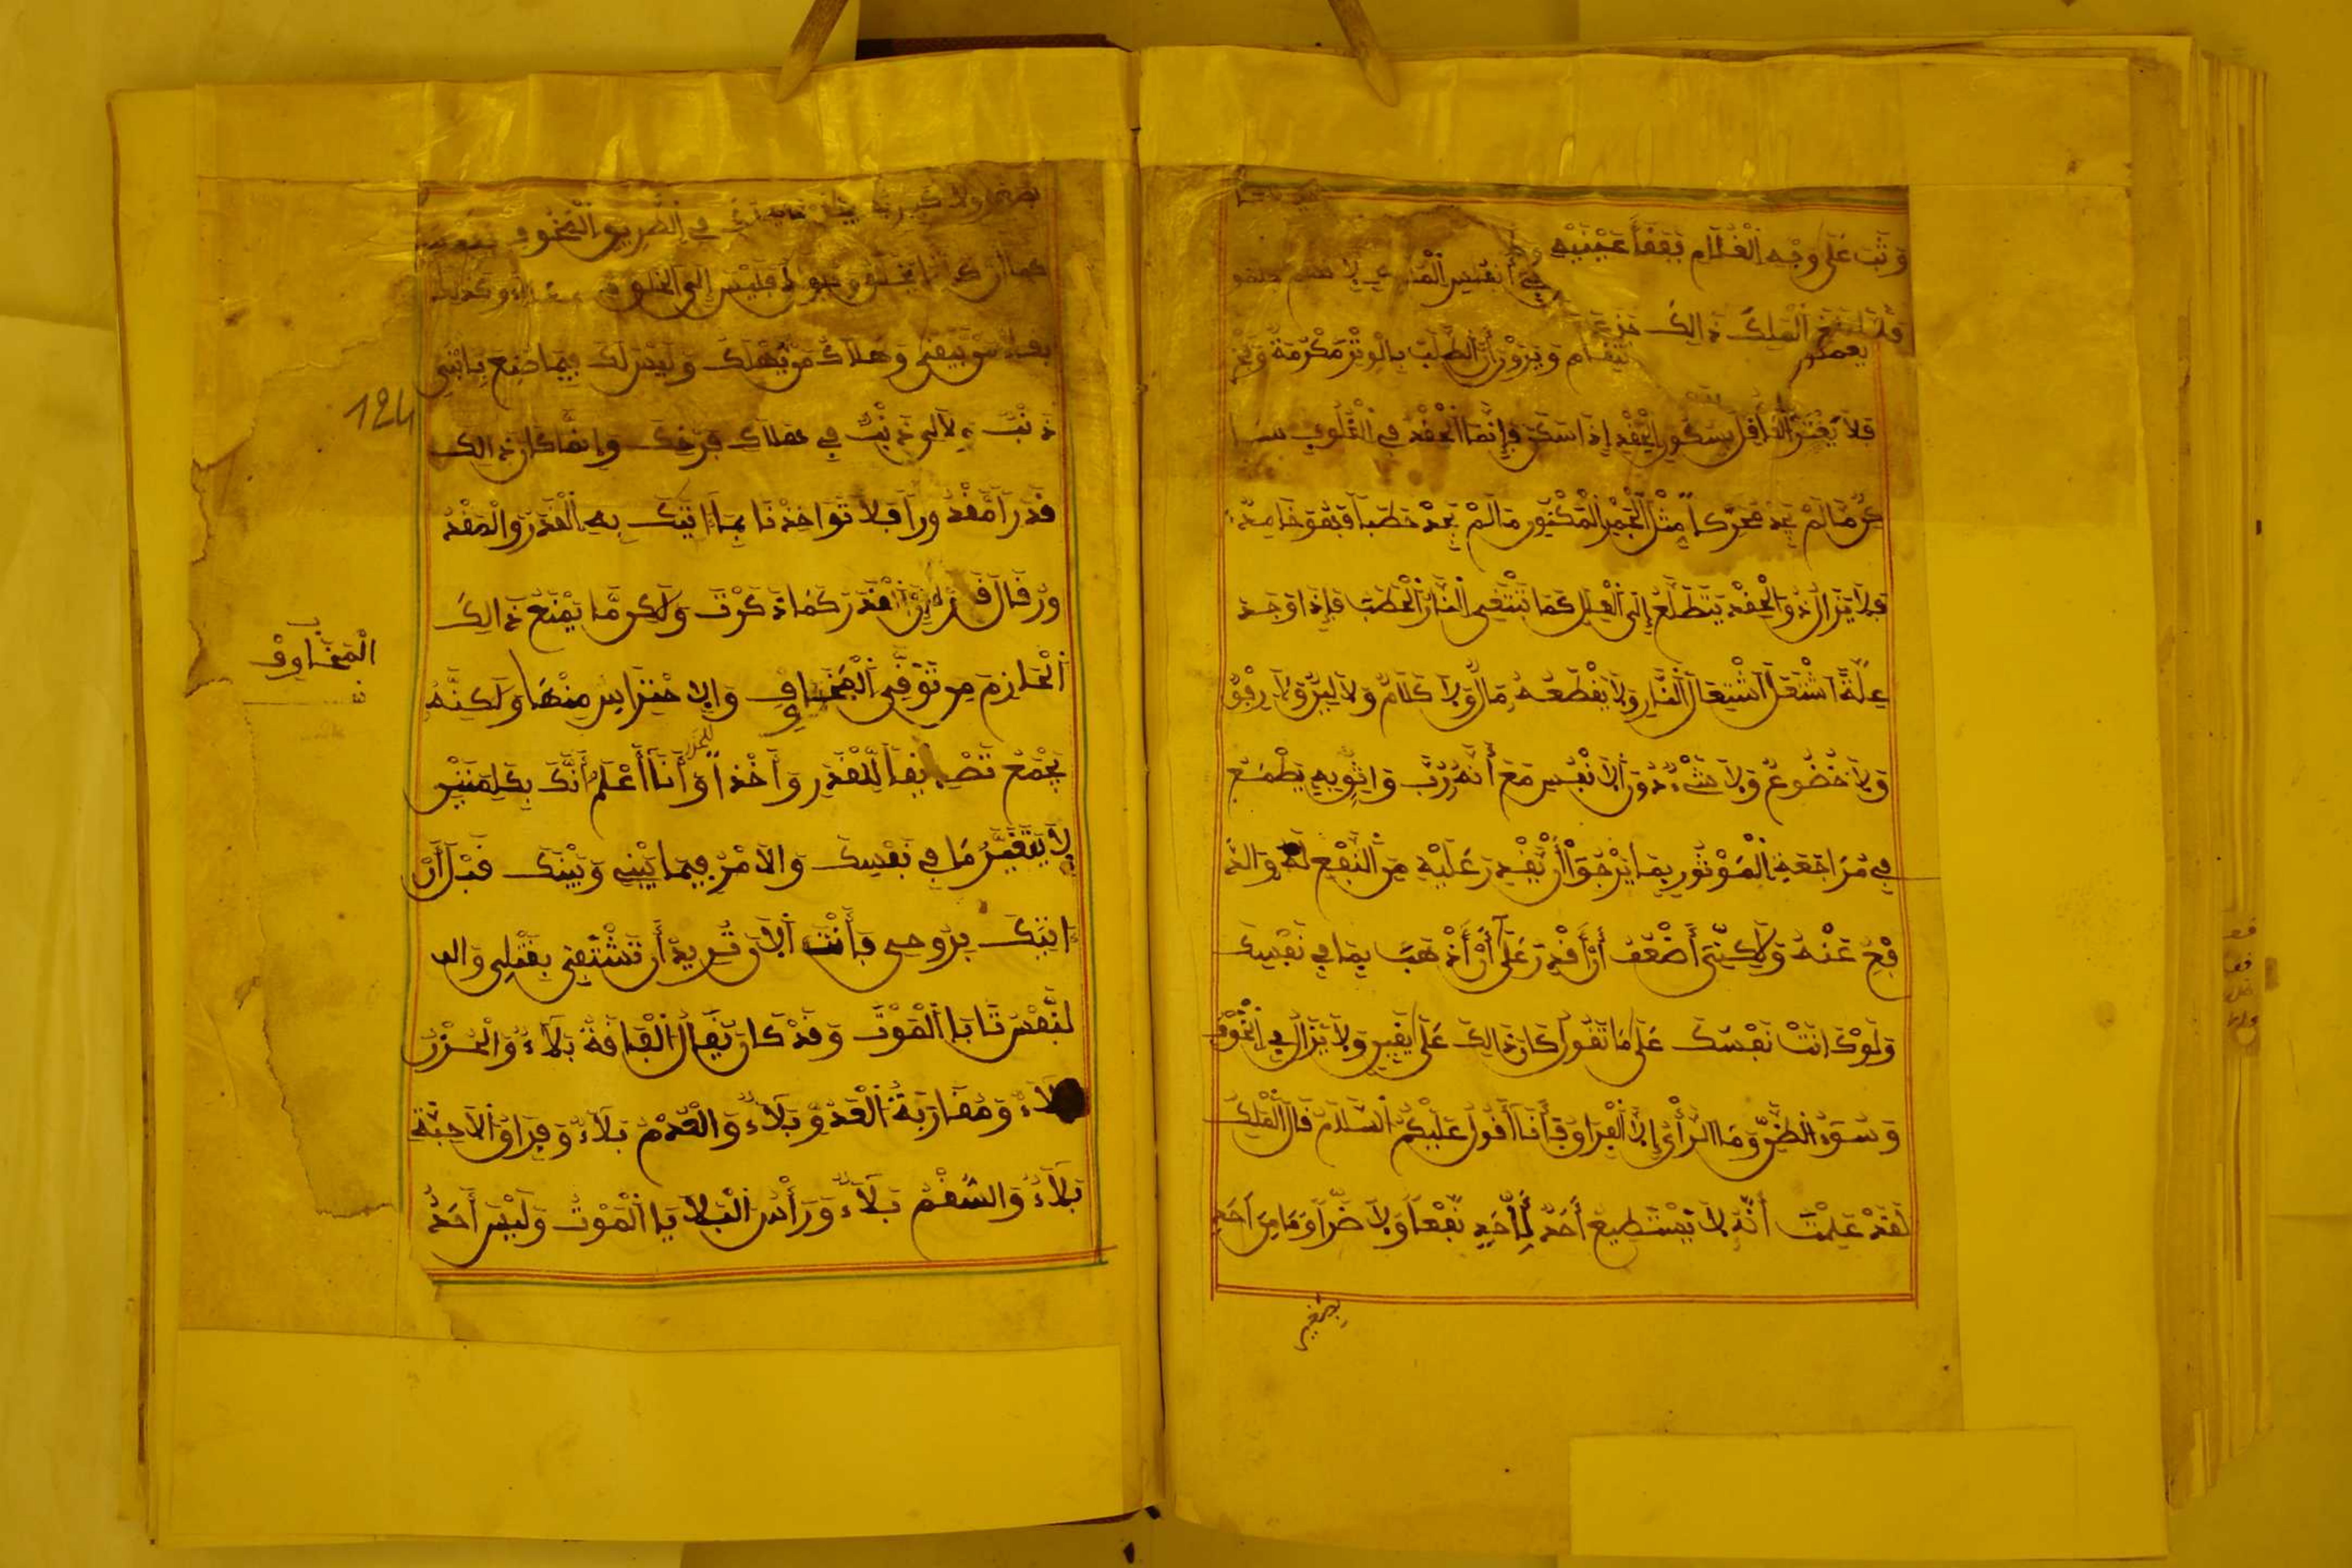 وَثَبَ عَلَى وَجْهِ الْغُلَامِ فَفَقَأَ عَيْنَيْهِ
فِي أَنْفُسِ
فَلَمَّا بَلَغَ الْمَلِكَ ذَالِكَ جَزِعَ
انْتِقَام وَيَرَوْنَ أَنَّ الطَّلَبَ بِالْوِتْرِ مَكْرُمَةٌ
فَلَا يَغْتَرَّ الْعَاقِل بِسُكُونِ الْحِقْدِ إِذَا سَكَنَ فَإِنَّمَا الْحِقْدُ فِي الْقُلُوبِ
مَا لَمْ يَجِدْ مُحَرِّكاً مِثْلَ الْجَمْرِ الْمَكْنُونِ مَا لَمْ يَجِدْ حَطَباً فَهُوَ خَامِدٌ
فَلَا يَزَالُ ذُو الْحِقْدِ يَتَطَلَّعُ إِلَى الْعِلَلِ كَمَا تَبْتَغِي النَّارُ الْحَطَبَ فَإِذَا وَجَدَ
عِلَّةً اشْتَعَلَ اشْتِعَالَ النَّارِ وَلَا يَقْطَعُهُ مَالٌ وَلَا كَلَامٌ وَلَا لِينٌ وَلَا رِفْقٌ
وَلَا خُضُوعٌ وَلَا شَيْءٌ دُونَ الْأَنْفُسِ مَعَ أَنَّهُ رُبَّ وَاتِرٍ يَطْمَعُ
فِي مُرَاجَعَةِ الْمَوْتُورِ بِمَا يَرْجُو أَنْ يَقْدِرَ عَلَيْهِ مِنَ النَّفْعِ لَهُ وَالدَّ
فْعِ عَنْهُ وَلَكِنِّي أَضْعَفُ أَنْ أَقْدِرَ عَلَى أَنْ أَذْهَبَ بِمَا فِي نَفْسِكَ
وَلَوْ كَانَتْ نَفْسُكَ عَلَى مَا تَقُولُ كَانَ ذَالِكَ عَلَى يَقِينٍ وَلَا يَزَالُ فِي الْخَوْفِ
وَسُوءِ الظَّنِّ وَمَا الرَّأْيُ إِلَّا الْفِرَاقُ فَأَنَا أَقُولُ عَلَيْكُمُ السَّلَامُ قَالَ الْمَلِكُ
لَقَدْ عَلِمْتُ أَنَّهُ لَا يَسْتَطِيعُ أَحَدٌ لِأَحَدٍ نَفْعاً وَلَا ضَرّاً وَمَا مِنْ أَحَدٍ
بِصَغِيرٍ
فِي الطَّرِيقِ الْمَخُوفِ
كَمَا أَنَّ فَلَيْسَ إِلَى الْمَخْلُوقِ وَكَذَلِكَ
مَنْ يَبْقَى وَهَلَاكُ مَنْ يَهْلِكُ وَلَيْسَ لَكَ فِيمَا صُنِعَ بِابْنِي
124
ذَنْبٌ وَلَا لِي ذَنْبٌ فِي هَلَاكِ فَرْخِكَ وَإِنَّمَا كَانَ ذَالِكَ
قَدَراً مَقْدُوراً فَلَا تُؤَاخِذْنَا بِمَا أَتَاكَ بِهِ الْقَدَرُ وَالْمَقْدُ
ورُ قَالَ إِنَّ الْقَدَرَ كَمَا ذَكَرْتَ وَلَكِنْ مَا يَمْنَعُ ذَالِكَ
الْحَازِمَ مِنْ تَوَقِّي الْمَخَاوِفِ وَالْاحْتِرَاسِ مِنْهَا وَلَكِنَّهُ
الْمَخَاوِفِ
يَجْمَعُ تَصْدِيقاً لِلْقَدَرِ وَأَخْذاً وَأَنَا أَعْلَمُ أَنَّكَ بِكَلِمَتَيْنِ
لَا يَتَغَيَّرُ مَا فِي نَفْسِكَ وَالْأَمْرُ فِيمَا بَيْنِي وَبَيْنَكَ قَبْلَ أَنْ
آتِيَكَ بِرُوحِي فَأَنْتَ الْآنَ تُرِيدُ أَنْ تَشْتَفِيَ بِقَتْلِي وَا
لنَّفْسُ تَابَا الْمَوْتَ وَقَدْ كَانَ يُقَالُ الْفَاقَةُ بَلَاءٌ وَالْحُزْنُ
بَلَاءٌ وَمُقَارَبَةُ الْعَدُوِّ بَلَاءٌ وَالْعُدْمُ بَلَاءٌ وَفِرَاقُ الْأَحِبَّةِ
بَلَاءٌ وَالسُّقْمُ بَلَاءٌ وَرَأْسُ الْبَلَايَا الْمَوْتُ وَلَيْسَ أَحَدٌ